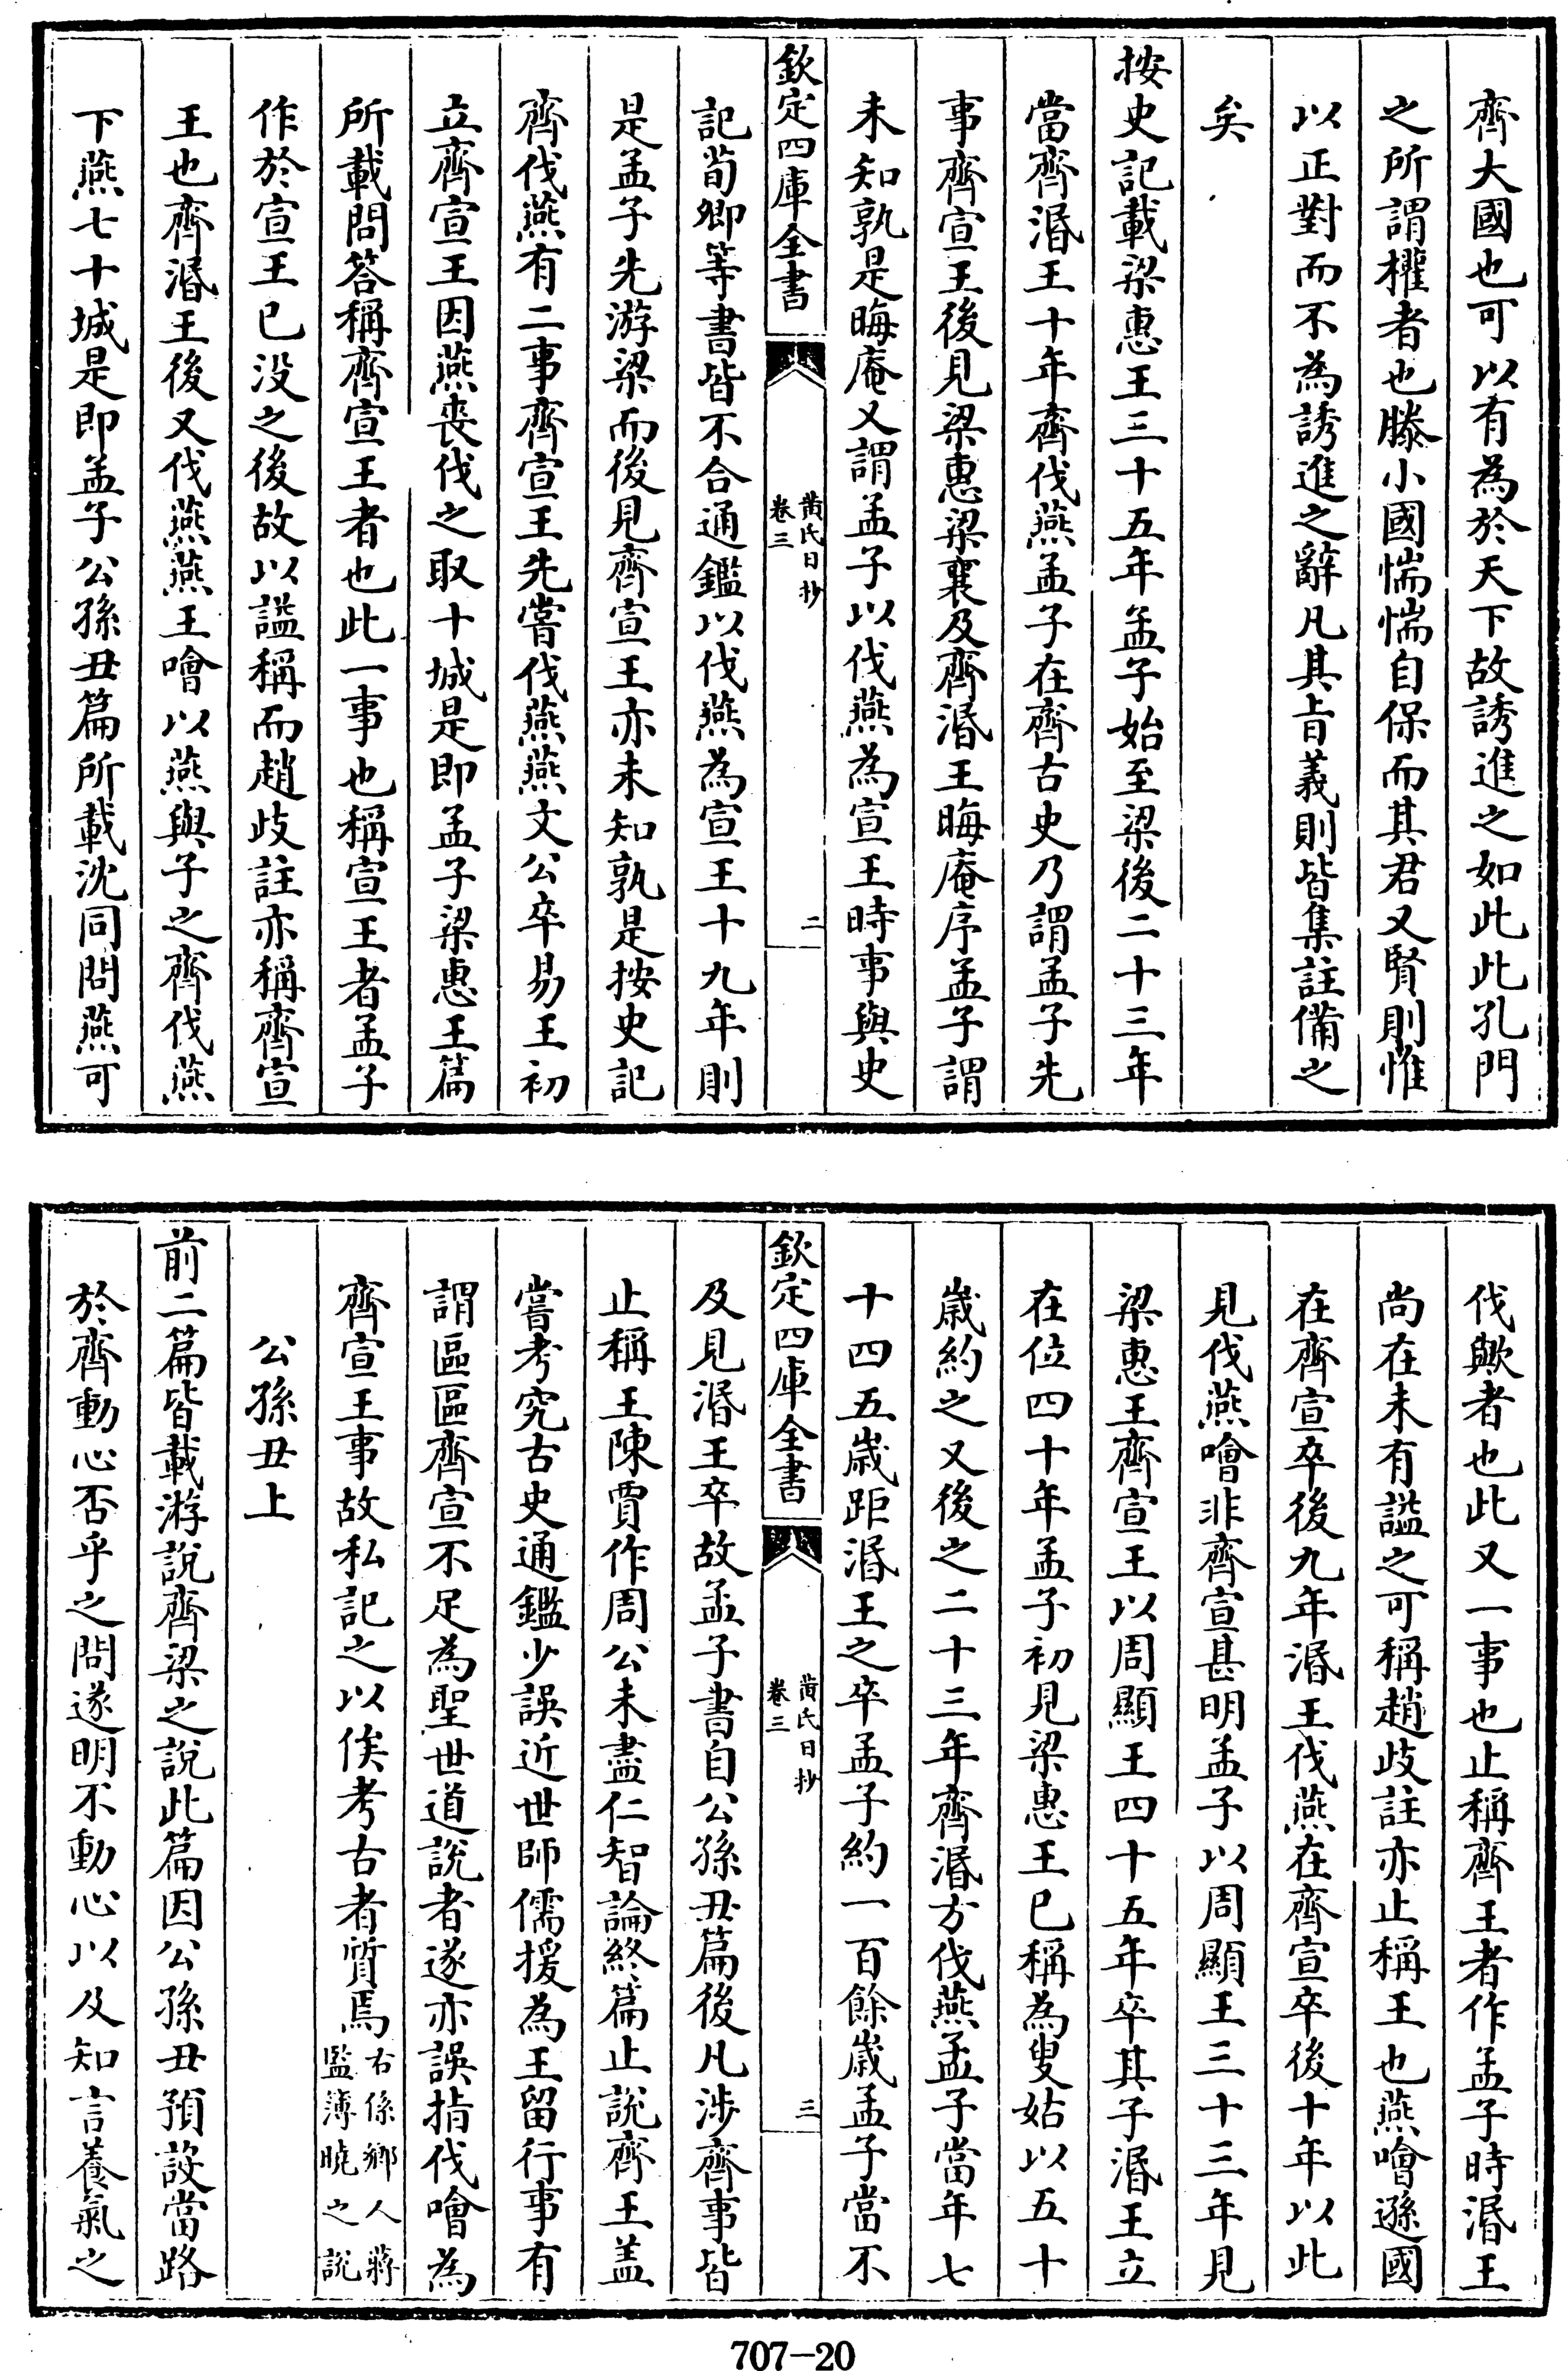 齊大國也可以有為於天下故誘進之如此此孔門
之所謂權者也滕小國惴惴自保而其君又賢則惟
以正對而不為誘進之辭凡其㫖義則皆集註備之
矣
按史記載梁惠王三十五年孟子始至梁後二十三年
當齊湣王十年齊伐燕孟子在齊古史乃謂孟子先
事齊宣王後見梁惠梁襄及齊湣王晦庵序孟子謂
未知孰是晦庵又謂孟子以伐燕為宣王時事與史
欽定四庫全書
黄氏日抄
卷三
二
記荀卿等書皆不合通鑑以伐燕為宣王十九年則
是孟子先游梁而後見齊宣王亦未知孰是按史記
齊伐燕有二事齊宣王先嘗伐燕燕文公卒易王初
立齊宣王因燕喪伐之取十城是即孟子梁惠王篇
所載問答稱齊宣王者也此一事也稱宣王者孟子
作於宣王已没之後故以謚稱而趙歧註亦稱齊宣
王也齊湣王後又伐燕燕王噲以燕與子之齊伐燕
下燕七十城是即孟子公孫丑篇所載沈同問燕可
伐歟者也此又一事也止稱齊王者作孟子時湣王
尚在未有謚之可稱趙歧註亦止稱王也燕噲遜國
在齊宣卒後九年湣王伐燕在齊宣卒後十年以此
見伐燕噲非齊宣甚明孟子以周顯王三十三年見
梁惠王齊宣王以周顯王四十五年卒其子湣王立
在位四十年孟子初見梁惠王已稱為叟姑以五十
歲約之又後之二十三年齊湣方伐燕孟子當年七
十四五歲距湣王之卒孟子約一百餘歲孟子當不
欽定四庫全書
黄氏日抄
卷三
三
及見湣王卒故孟子書自公孫丑篇後凡涉齊事皆
止稱王陳賈作周公未盡仁智論終篇止說齊王盖
嘗考究古史通鑑少誤近世師儒援為王留行事有
謂區區齊宣不足為聖世道說者遂亦誤指伐噲為
齊宣王事故私記之以俟考古者質焉右係鄉人蔣
監簿曉之說
公孫丑上
前二篇皆載游說齊梁之說此篇因公孫丑預設當路
於齊動心否乎之問遂明不動心以及知言養氣之
707-20